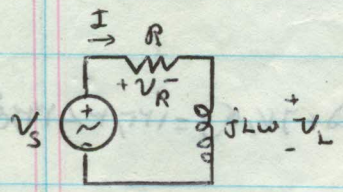 I
R
+ V_R -
V_S
+
~
-
jLω
+
V_L
-